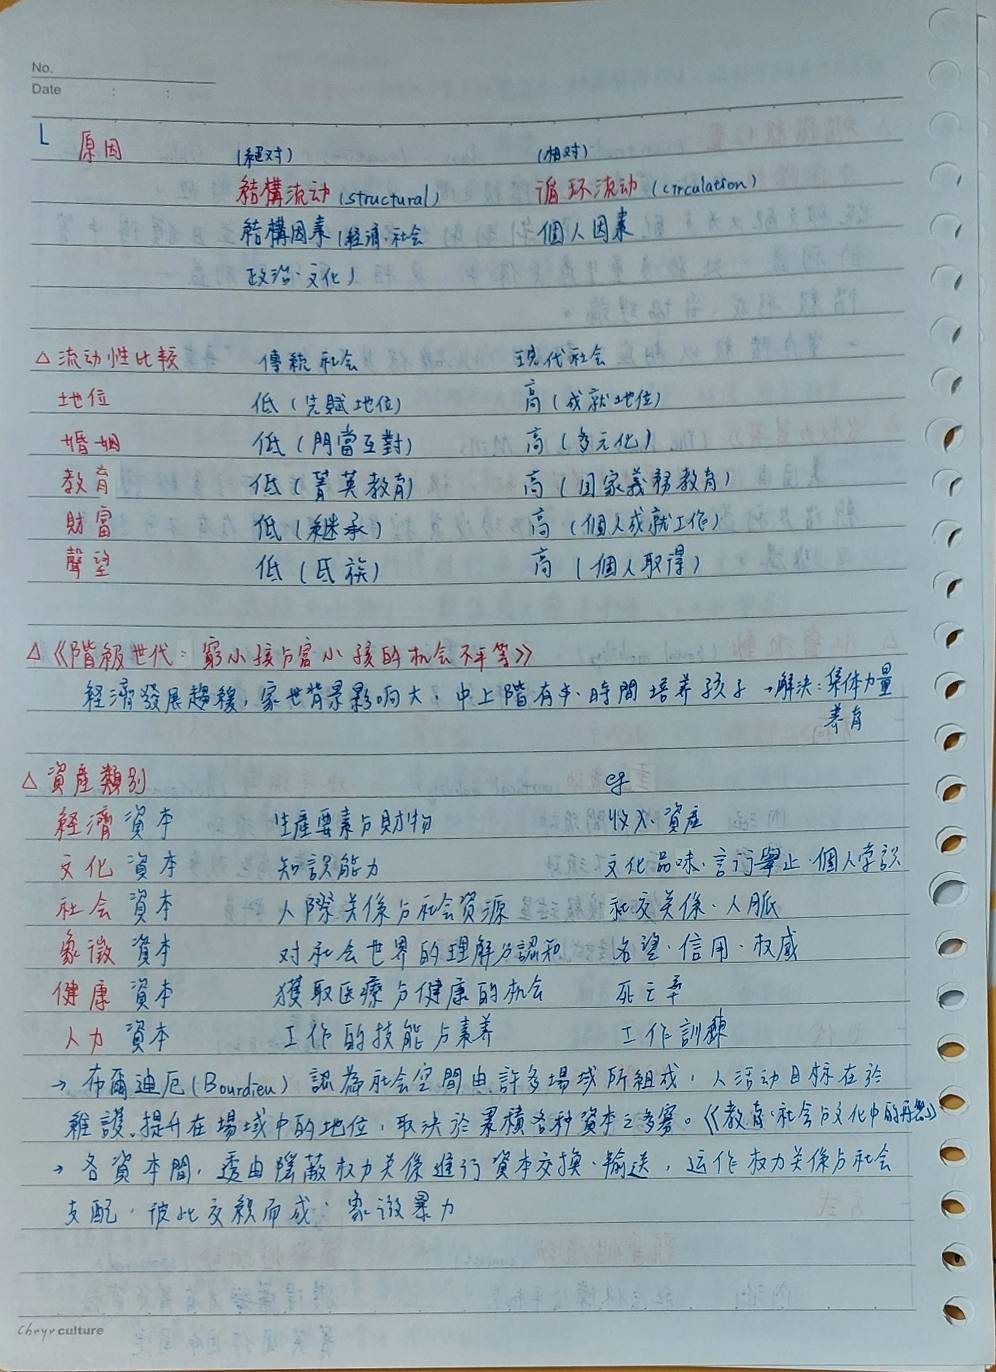 No.
Date : :
原因 (絕对) (相对)
結構流动 (structural) 循环流动 (circulation)
結構因素 (経済、社会 個人因素
政治、文化)
△ 流动性比較 傳統社会 現代社会
地位 低 (先賦地位) 高 (成就地位)
婚姻 低 (門當互對) 高 (多元化)
教育 低 (菁英教育) 高 (国家義務教育)
財富 低 (継承) 高 (個人成就工作)
聲望 低 (氏族) 高 (個人取得)
△《階級世代：窮小孩与富小孩的机会不平等》
経濟發展趨緩，家世背景影响大，中上階有 時間培养孩子 → 解決：集体力量
养育
△ 資產類別 eg
経濟資本 生産要素与財物 收入、資産
文化資本 知識能力 文化品味、言行舉止、個人学識
社会資本 人際关係与社会資源 社交关係、人脈
象徵資本 对社会世界的理解与認知 名望、信用、权威
健康資本 獲取医療与健康的机会 死亡率
人力資本 工作的技能与素养 工作訓練
→ 布爾迪厄 (Bourdieu) 認為社会空間由許多場域所組成，人活动目标在於
維護、提升在場域中的地位，取決於累積各种資本之多寡。《教育、社会与文化中的再製》
→ 各資本間，透由隱蔽权力关係進行資本交换、輸送，运作权力关係与社会
支配，彼此交織而成，象徵暴力
culture